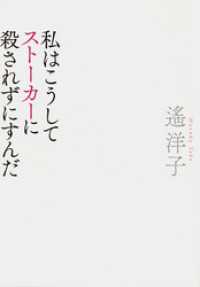 私はこうして
ストーカーに
殺されずにすんだ
遙洋子